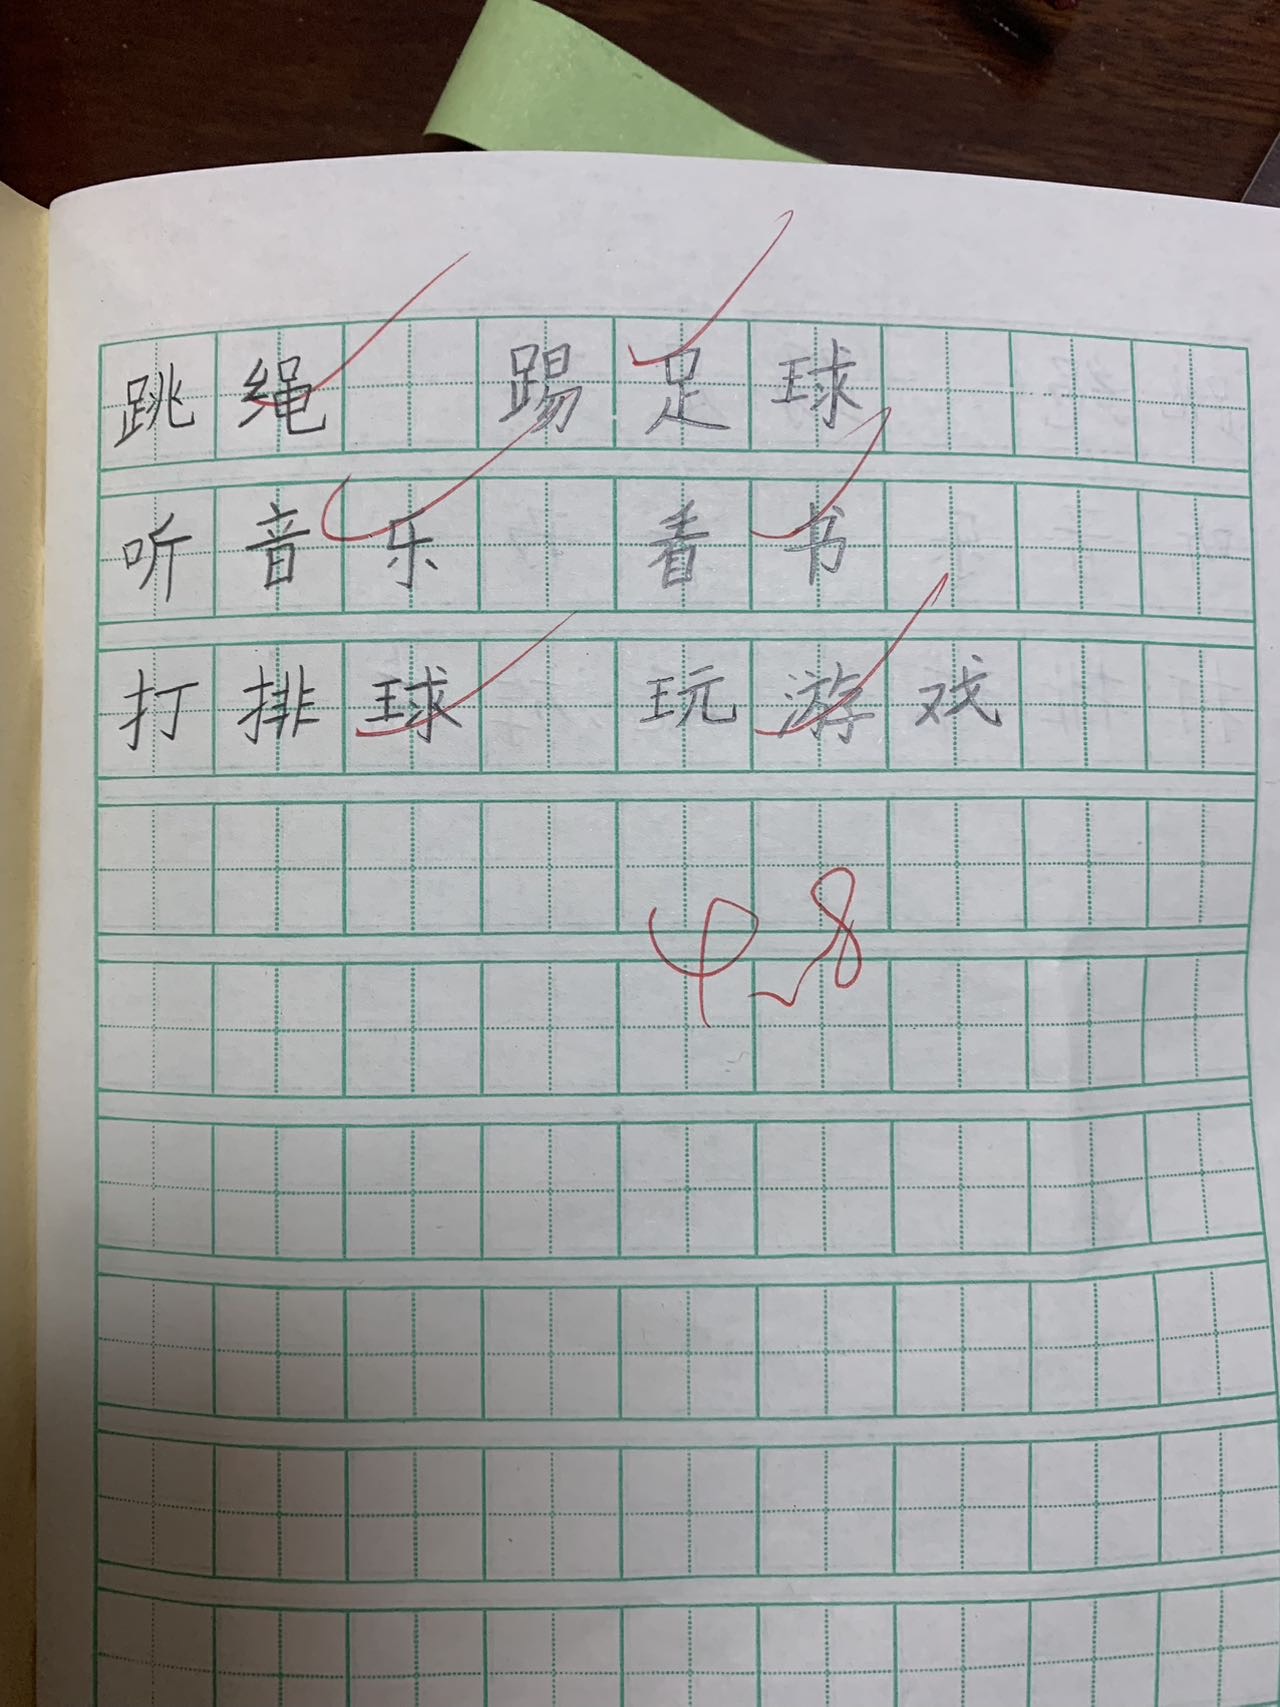 跳绳 踢足球
听音乐 看书
打排球 玩游戏